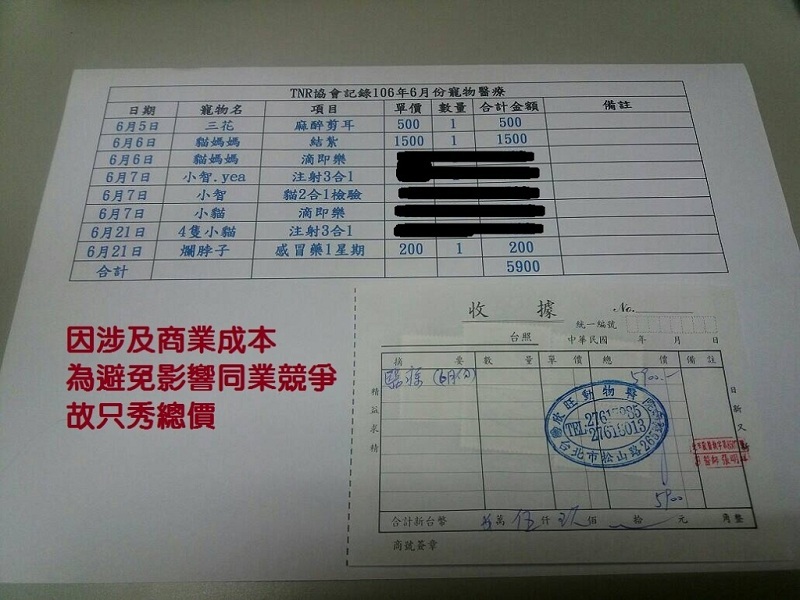 TNR協會記錄106年6月份寵物醫療
日期 寵物名 項目 單價 數量 合計金額 備註
6月5日 三花 麻醉剪耳 500 1 500
6月6日 貓媽媽 結紮 1500 1 1500
6月6日 貓媽媽 滴即樂
6月7日 小智.yea 注射3合1
6月7日 小智 貓2合1檢驗
6月7日 小貓 滴即樂
6月21日 4隻小貓 注射3合1
6月21日 爛脖子 感冒藥1星期 200 1 200
合計 5900
因涉及商業成本
為避免影響同業競爭
故只秀總價
收據 No.
統一編號
台照 中華民國 年 月 日
摘要 數量 單價 總價 備註
醫療(6月份) 5900.-
精益求精
日新又新
動物醫院
TEL:
台北市松山路
5900
合計新台幣 萬 伍仟 玖佰 拾 元 角整
商號簽章